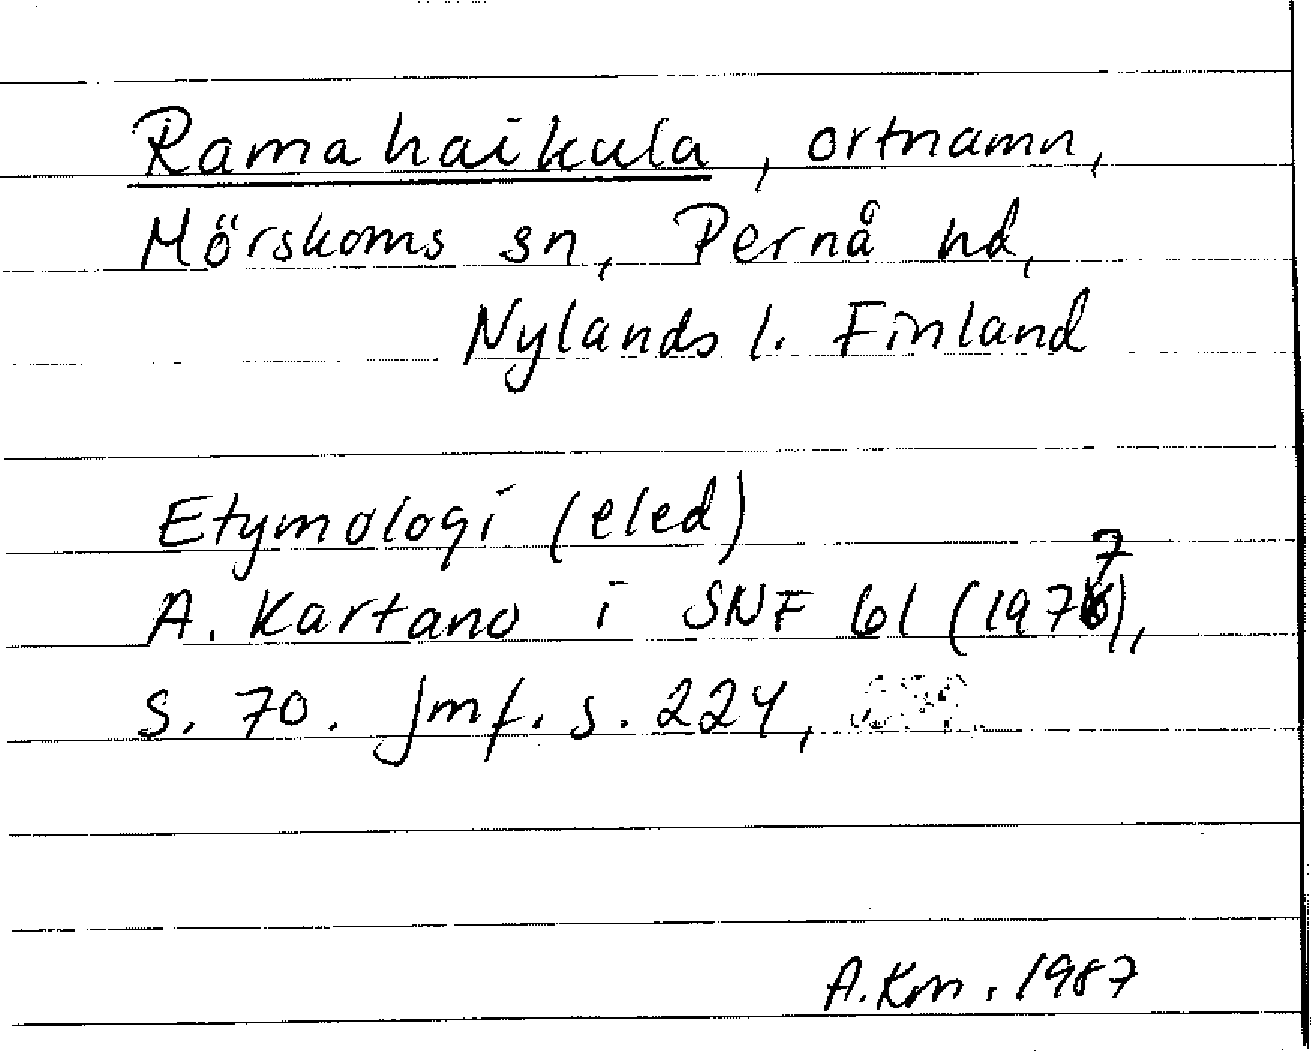 Ramahaikula, ortnamn,
Mörskoms sn, Pernå hd,
Nylands l. Finland
Etymologi (eled)
A. Kartano i SNF 61 (1977),
s. 70. Jmf. s. 224,
A.Km. 1987